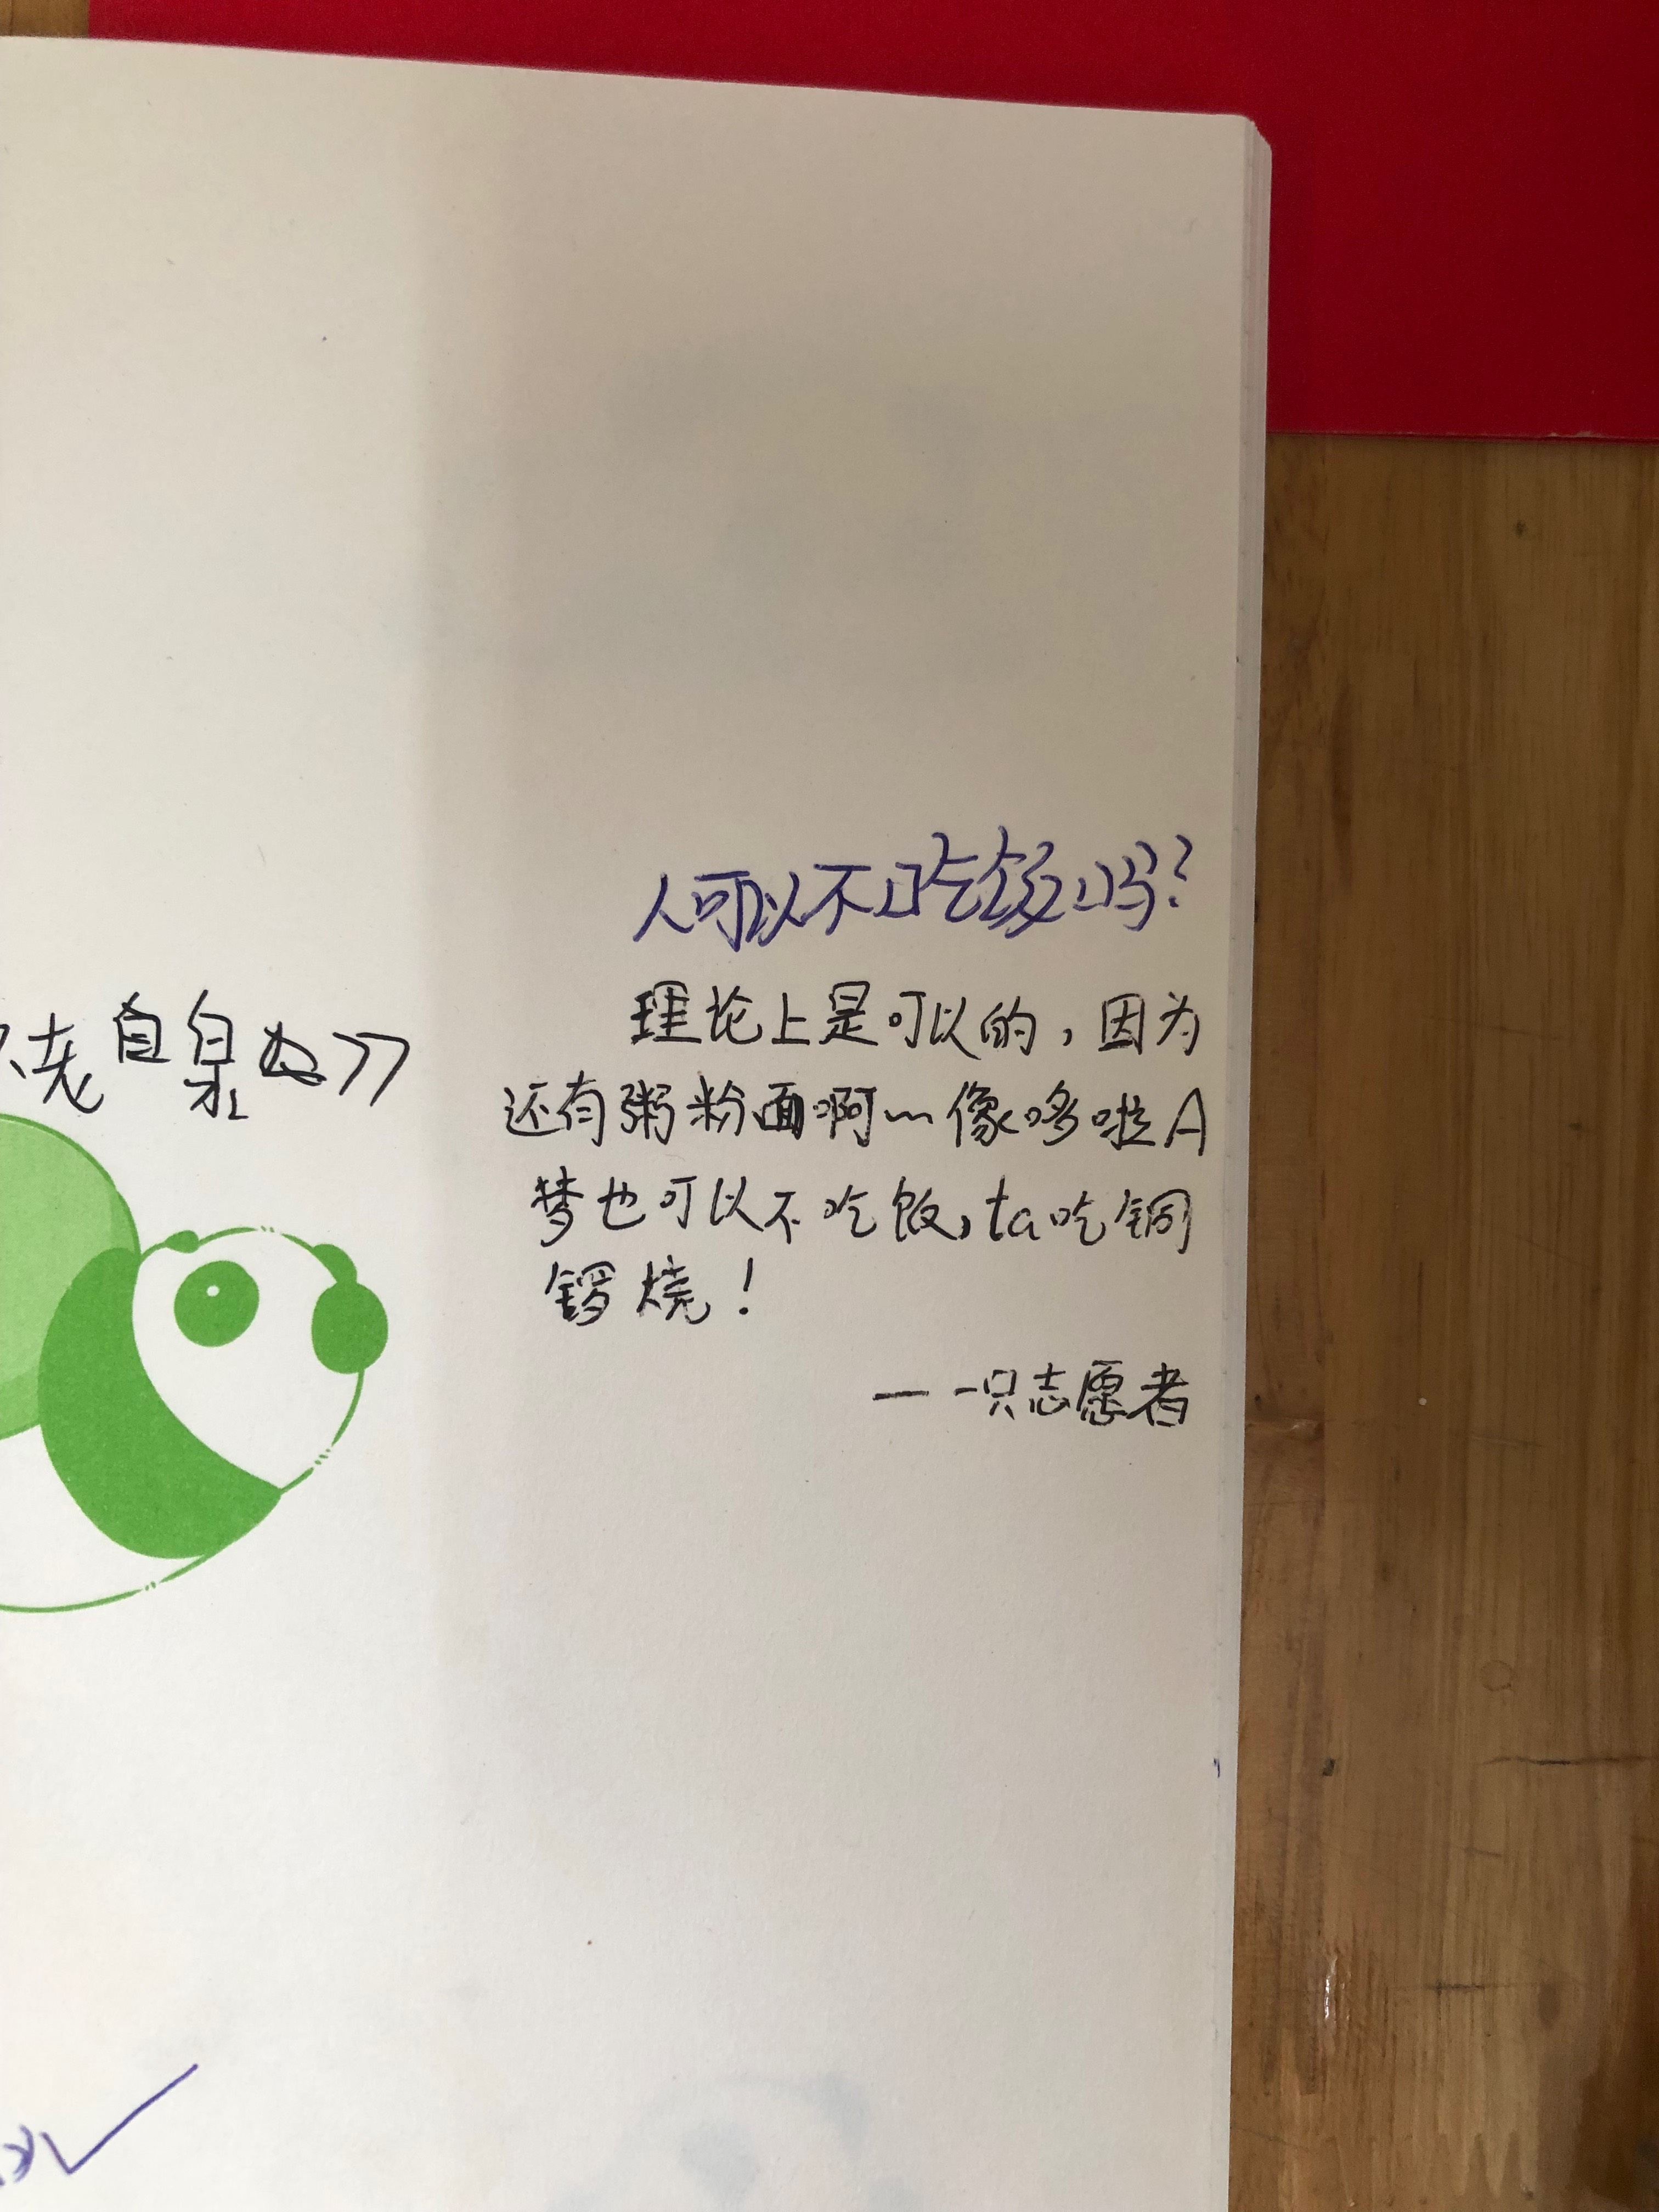 人可以不吃饭吗？
理论上是可以的，因为
还有粥粉面啊～像哆啦A
梦也可以不吃饭，ta吃铜
锣烧！
——一只志愿者
老自泉